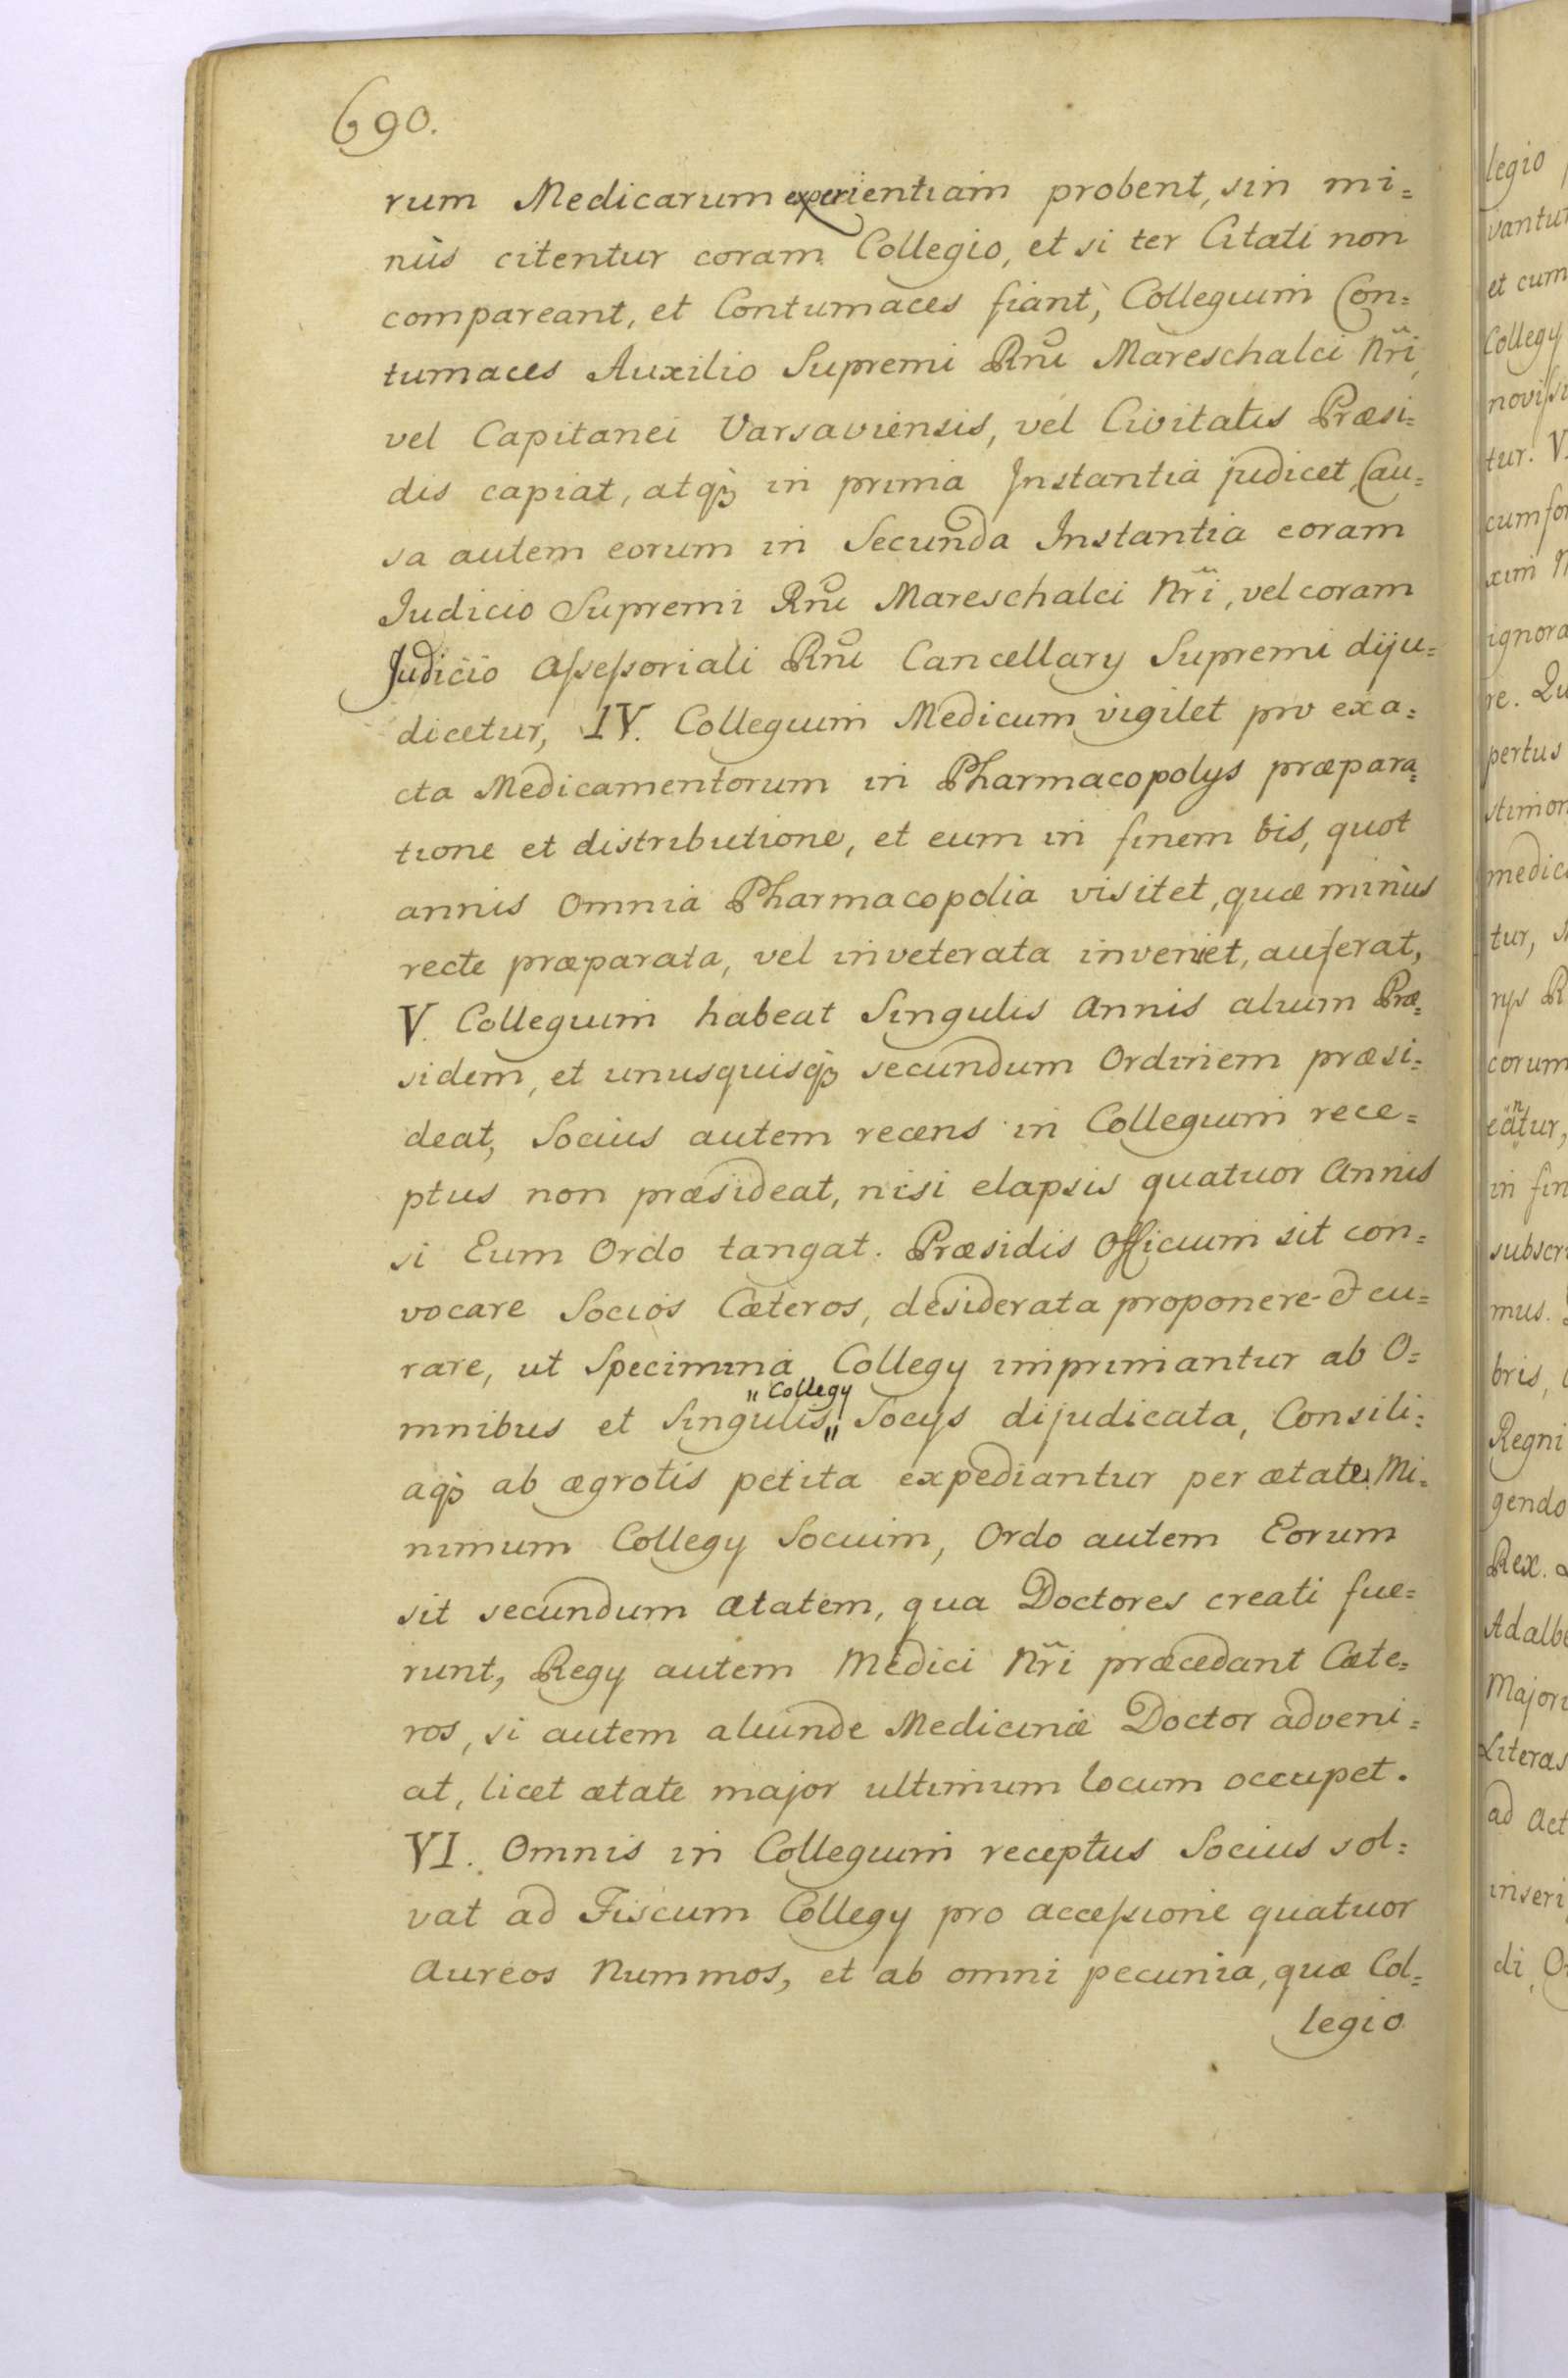 690.
rum Medicarum experientiam probent, sin mi=
nùs citentur coram Collegio, et si ter Citati non
compareant, et Contumaces fiant, Collegium Con=
tumaces Auxilio Supremi Rni Mareschalci Nri,
vel Capitanei Varsaviensis, vel Civitatis Præsi=
dis capiat, atq3 in prima Instantia judicet, Cau=
sa autem eorum in Secunda Instantia coram
Judicio Supremi Rni Mareschalci Nri, vel coram
Judicio Aſseſsoriali Rni Cancellary Supremi diju=
dicetur, IV. Collegium Medicum vigilet pro exa=
cta Medicamentorum in Pharmacopolys præpara=
tione et distributione, et eum in finem bis, quot
annis omnia Pharmacopolia visitet, quæ minùs
recte præparata, vel inveterata inveniet, auferat,
V. Collegium habeat Singulis Annis alium Præ=
sidem, et unusquisq3 secundum Ordinem præsi=
deat, Socius autem recens in Collegium rece=
ptus non præsideat, nisi elapsis quatuor Annis
si Eum Ordo tangat. Præsidis Officium sit con=
vocare Socios Cæteros, desiderata proponere et cu=
rare, ut Specimina Collegy imprimantur ab O=
" Collegy
mnibus et Singulis " Socys dijudicata, Consili=
aq3 ab ægrotis petita expediantur per ætate Mi=
nimum Collegy Socium, Ordo autem Eorum
sit secundum ætatem, qua Doctores creati fue=
runt, Regy autem Medici Nri præcedant Cæte=
ros, si autem aliunde Medicinæ Doctor adveni=
at, licet ætate major ultimum locum occupet.
VI. Omnis in Collegium receptus Socius sol=
vat ad Fiscum Collegy pro acceſsione quatuor
Aureos Nummos, et ab omni pecunia, quæ Col=
legio
legio
vantur
et cum
Collegy
noviſsi
tur. V.
cumfor
xim
ignora
re. Qu
pertus
stimon
medica
tur,
rys R
corum
eantur,
in fin
subscri
mus.
bris,
Regni
gendo
Rex.
Adalbe
Majori
Literas
ad Act
inseri
di, O